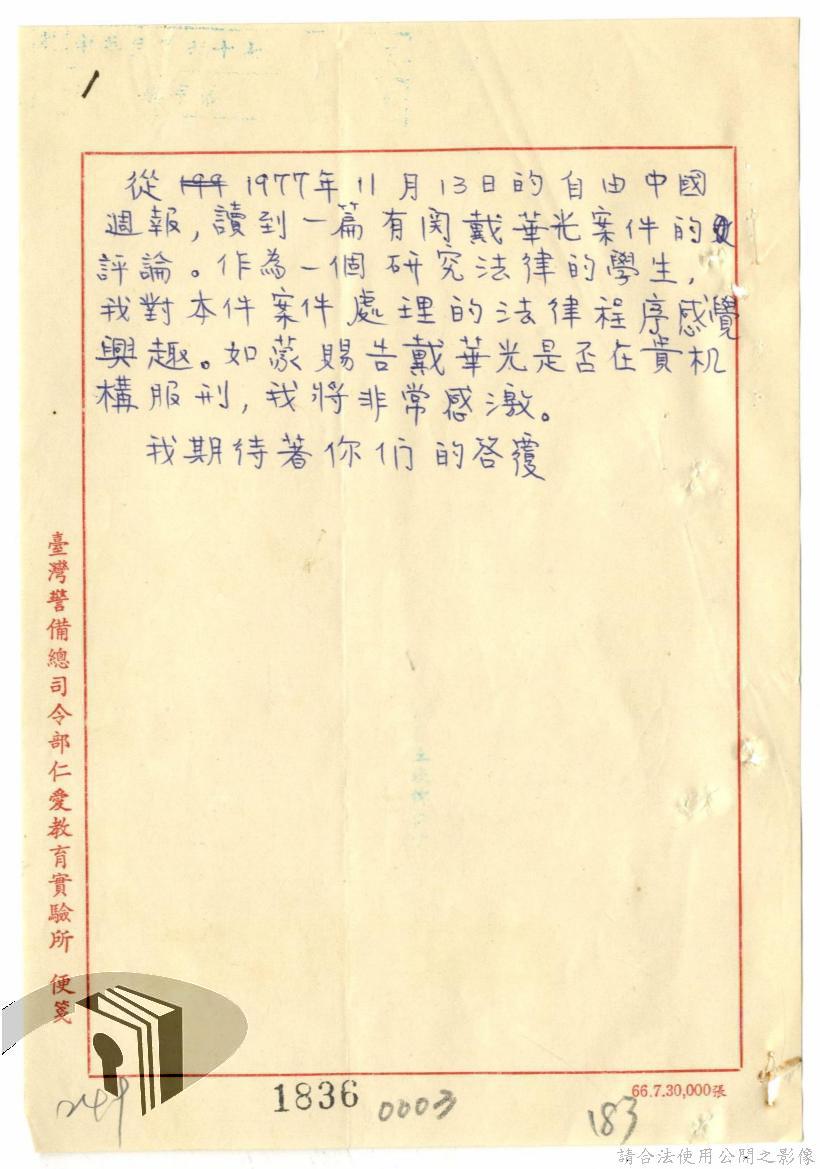 1
從 1977年11月13日的自由中國
週報,讀到一篇有関戴華光案件的
評論。作為一個研究法律的學生,
我對本件案件處理的法律程序感覺
興趣。如蒙賜告戴華光是否在貴机
構服刑,我將非常感激。
我期待著你们的答覆
臺灣警備總司令部仁愛教育實驗所 便箋
66.7.30,000張
249
1836
0003
183
請合法使用公開之影像